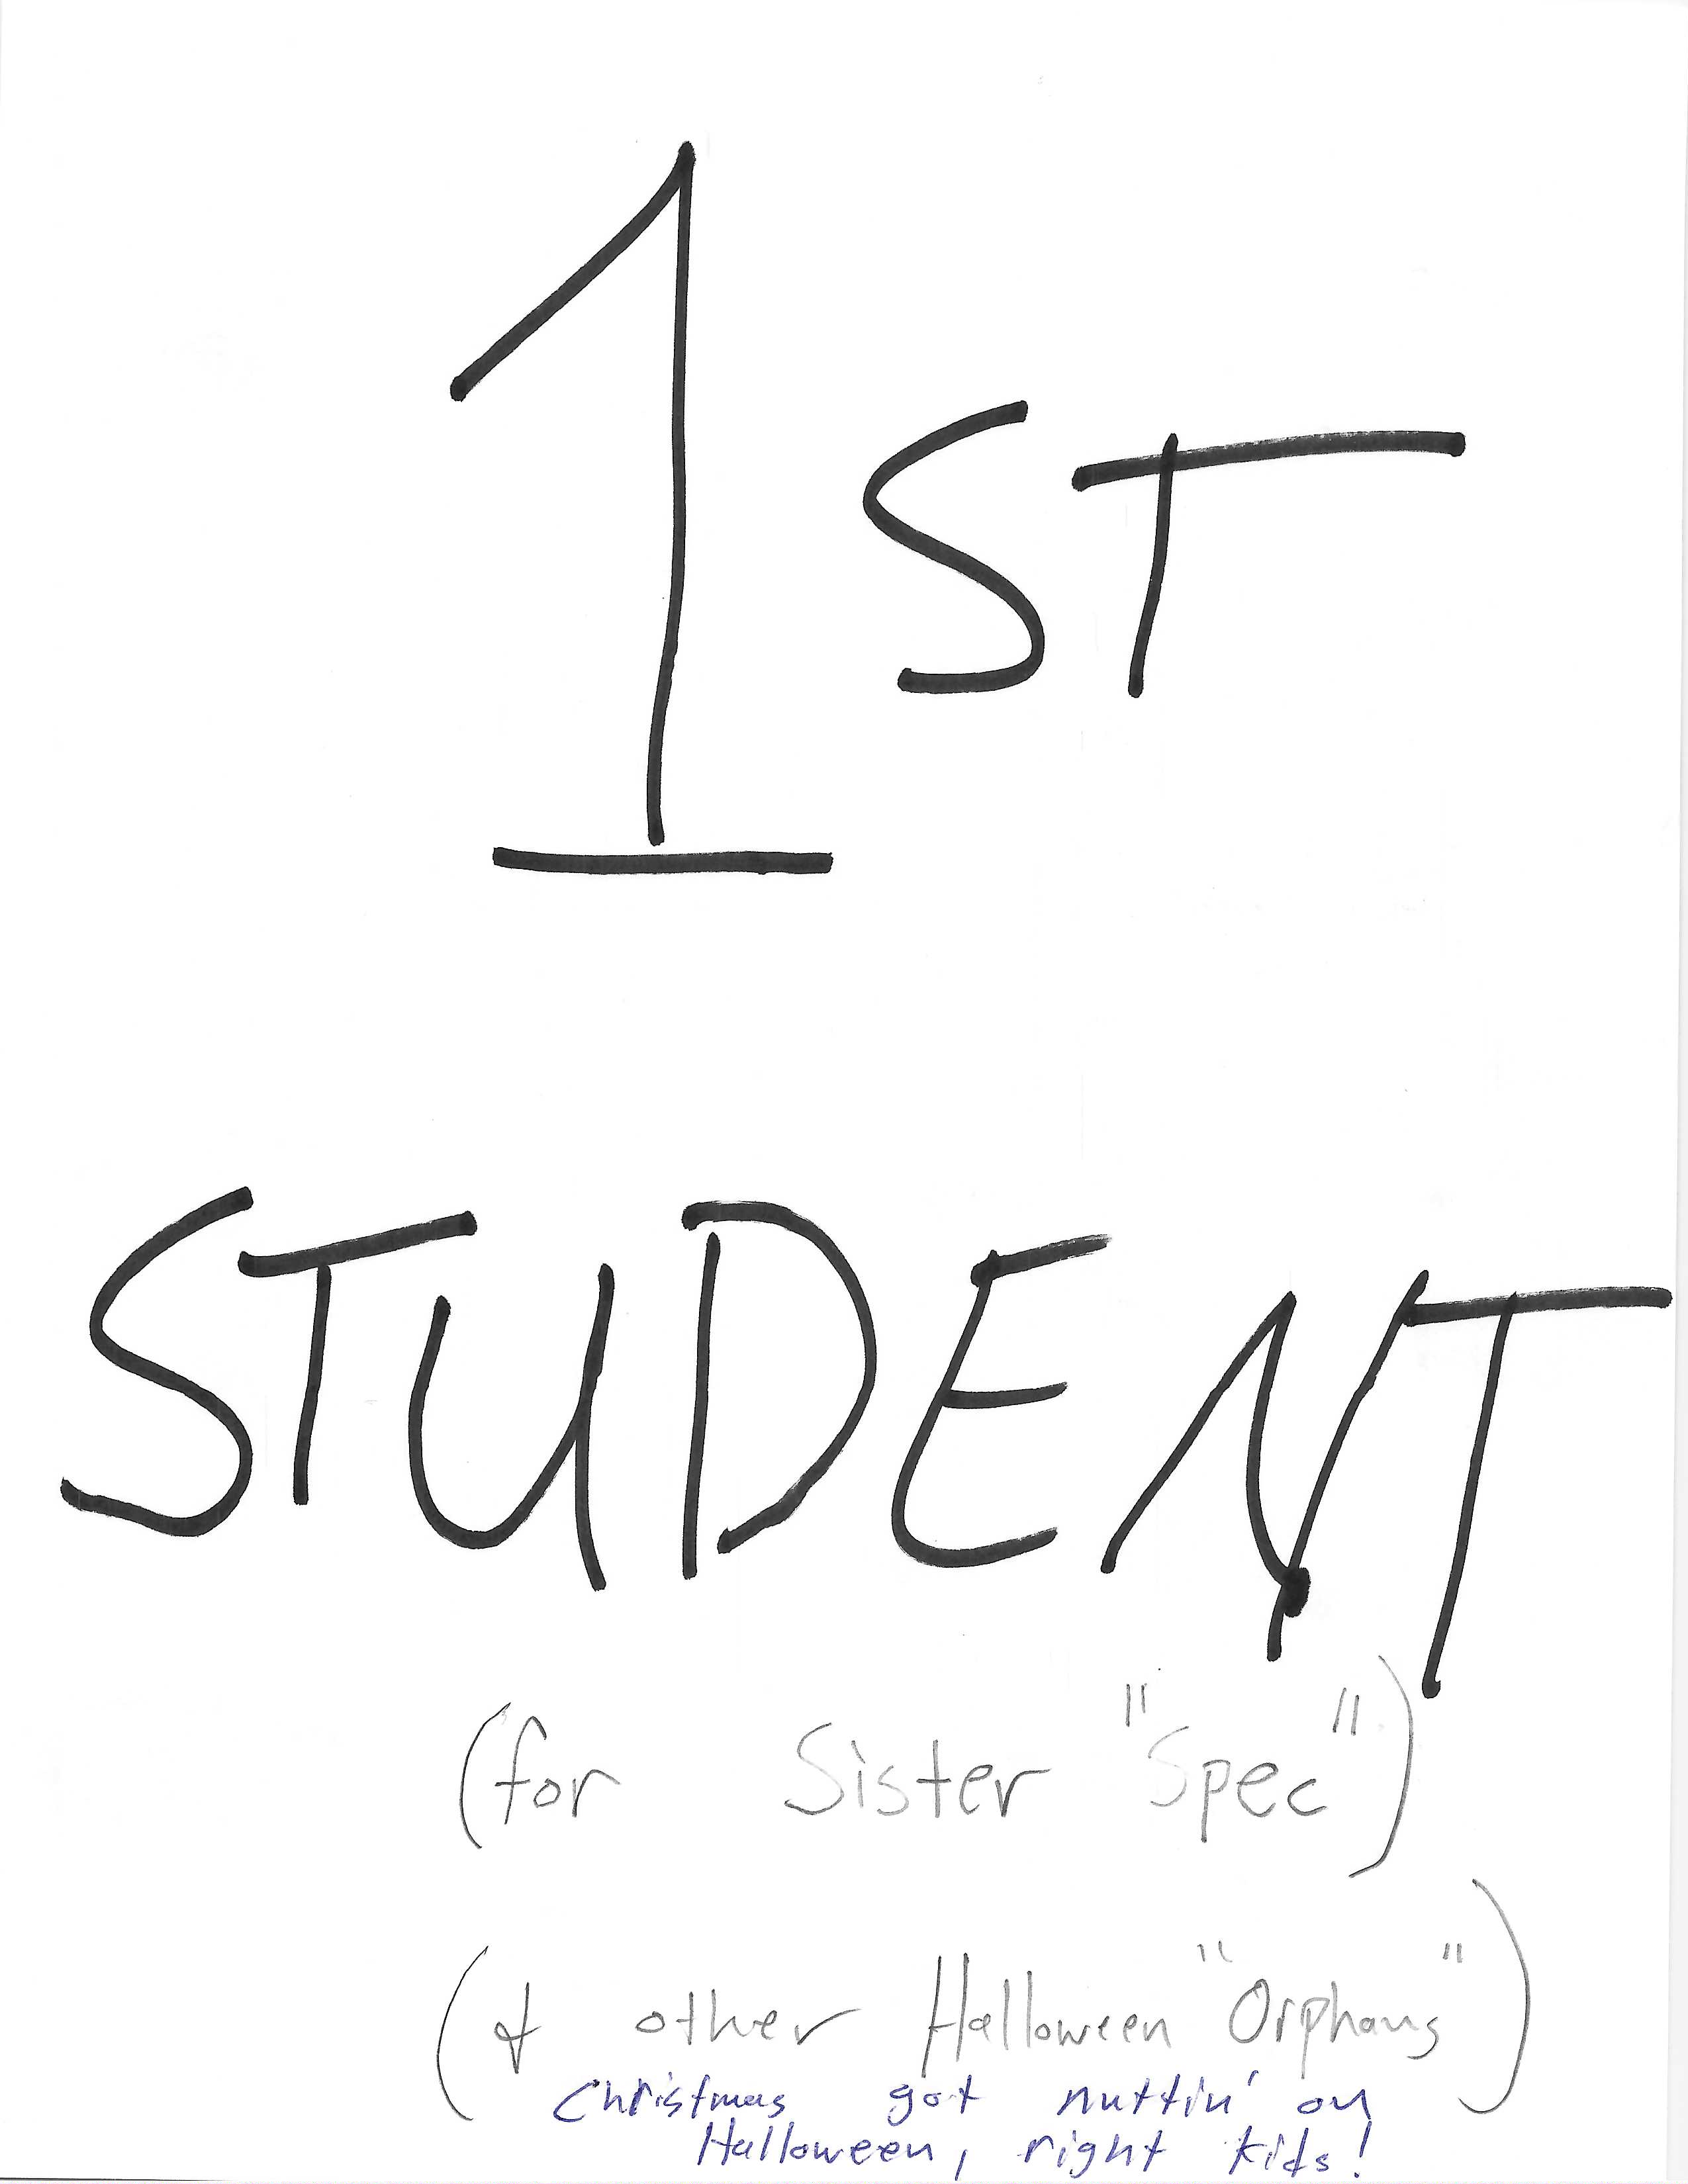 1ST
STUDENT
(for Sister "Spec")
(& other Halloween "Orphans")
Christmas got nuttin' on
Halloween, right kids!